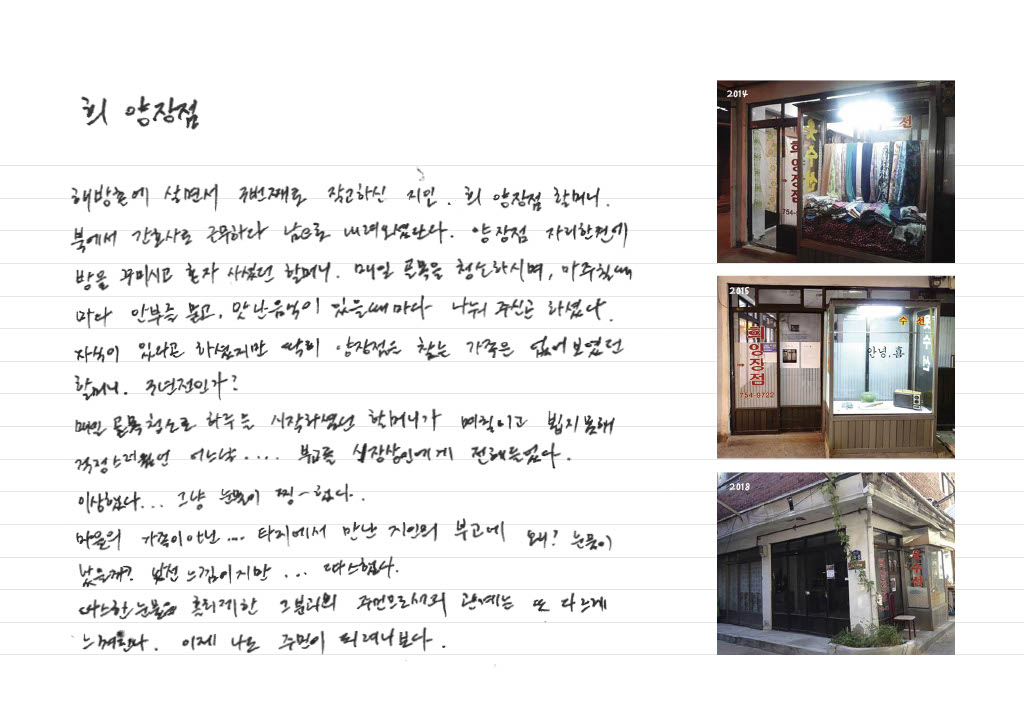 희 양장점
해방촌에 살면서 두번째로 작고하신 지인. 희 양장점 할머니.
북에서 간호사로 근무하다 남으로 내려오셨단다. 양장점 자리한편에
방을 꾸미시고 혼자 사셨던 할머니. 매일 골목을 청소하시며, 마주칠때
마다 안부를 묻고, 맛난음식이 있을때마다 나눠 주신곤 하셨다.
자식이 있다곤 하셨지만 딱히 양장점을 찾는 가족은 없어보였던
할머니. 3년전인가?
매일 골목청소로 하루를 시작하셨던 할머니가 며칠이고 뵙지못해
걱정스러웠던 어느날.... 부고를 시장상인에게 전해들었다.
이상했다... 그냥 눈물이 찡-했다.
마을의 가족이아닌... 타지에서 만난 지인의 부고에 왜? 눈물이
났을까? 낯선느낌이지만... 따스했다.
따스한눈물을 흘리게한 그분과의 주민으로서의 관계는 또 다르게
느껴진다. 이제 나도 주민이 되려나보다.
2014
옷수선
수선
희양장점
754-
2015
희양장점
754-9722
안녕, 흠
수선
옷수선
2018
옷수선